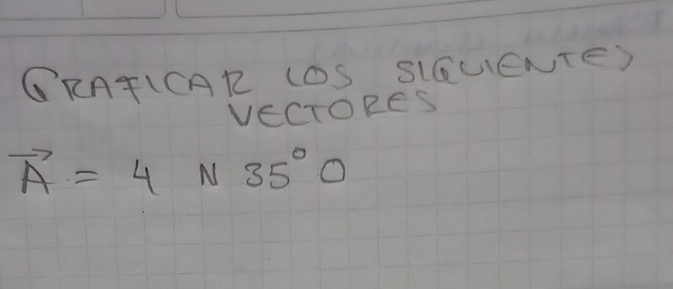 GRAFICAR LOS SIGUIENTES
VECTORES
A⃗ = 4 N 35° O